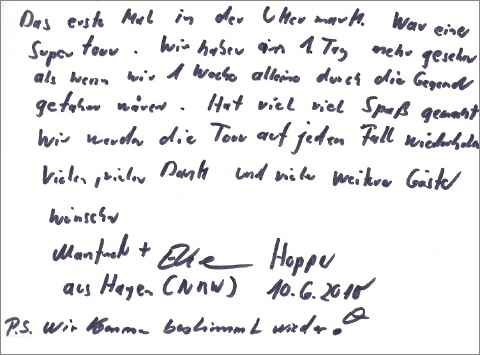 Das erste Mal in der Uckermark. War eine
Super Tour. Wir haben am 1. Tag mehr gesehen
als wenn wir 1 Woche alleine durch die Gegend
gefahren wären. Hat viel viel Spaß gemacht
Wir werden die Tour auf jeden Fall wiederholen
Vielen, vielen Dank und viele weitere Gäste
wünschen
Manfred + Elke Hoppe
aus Hagen (NRW) 10.6.2010
P.S. Wir kommen bestimmt wieder.